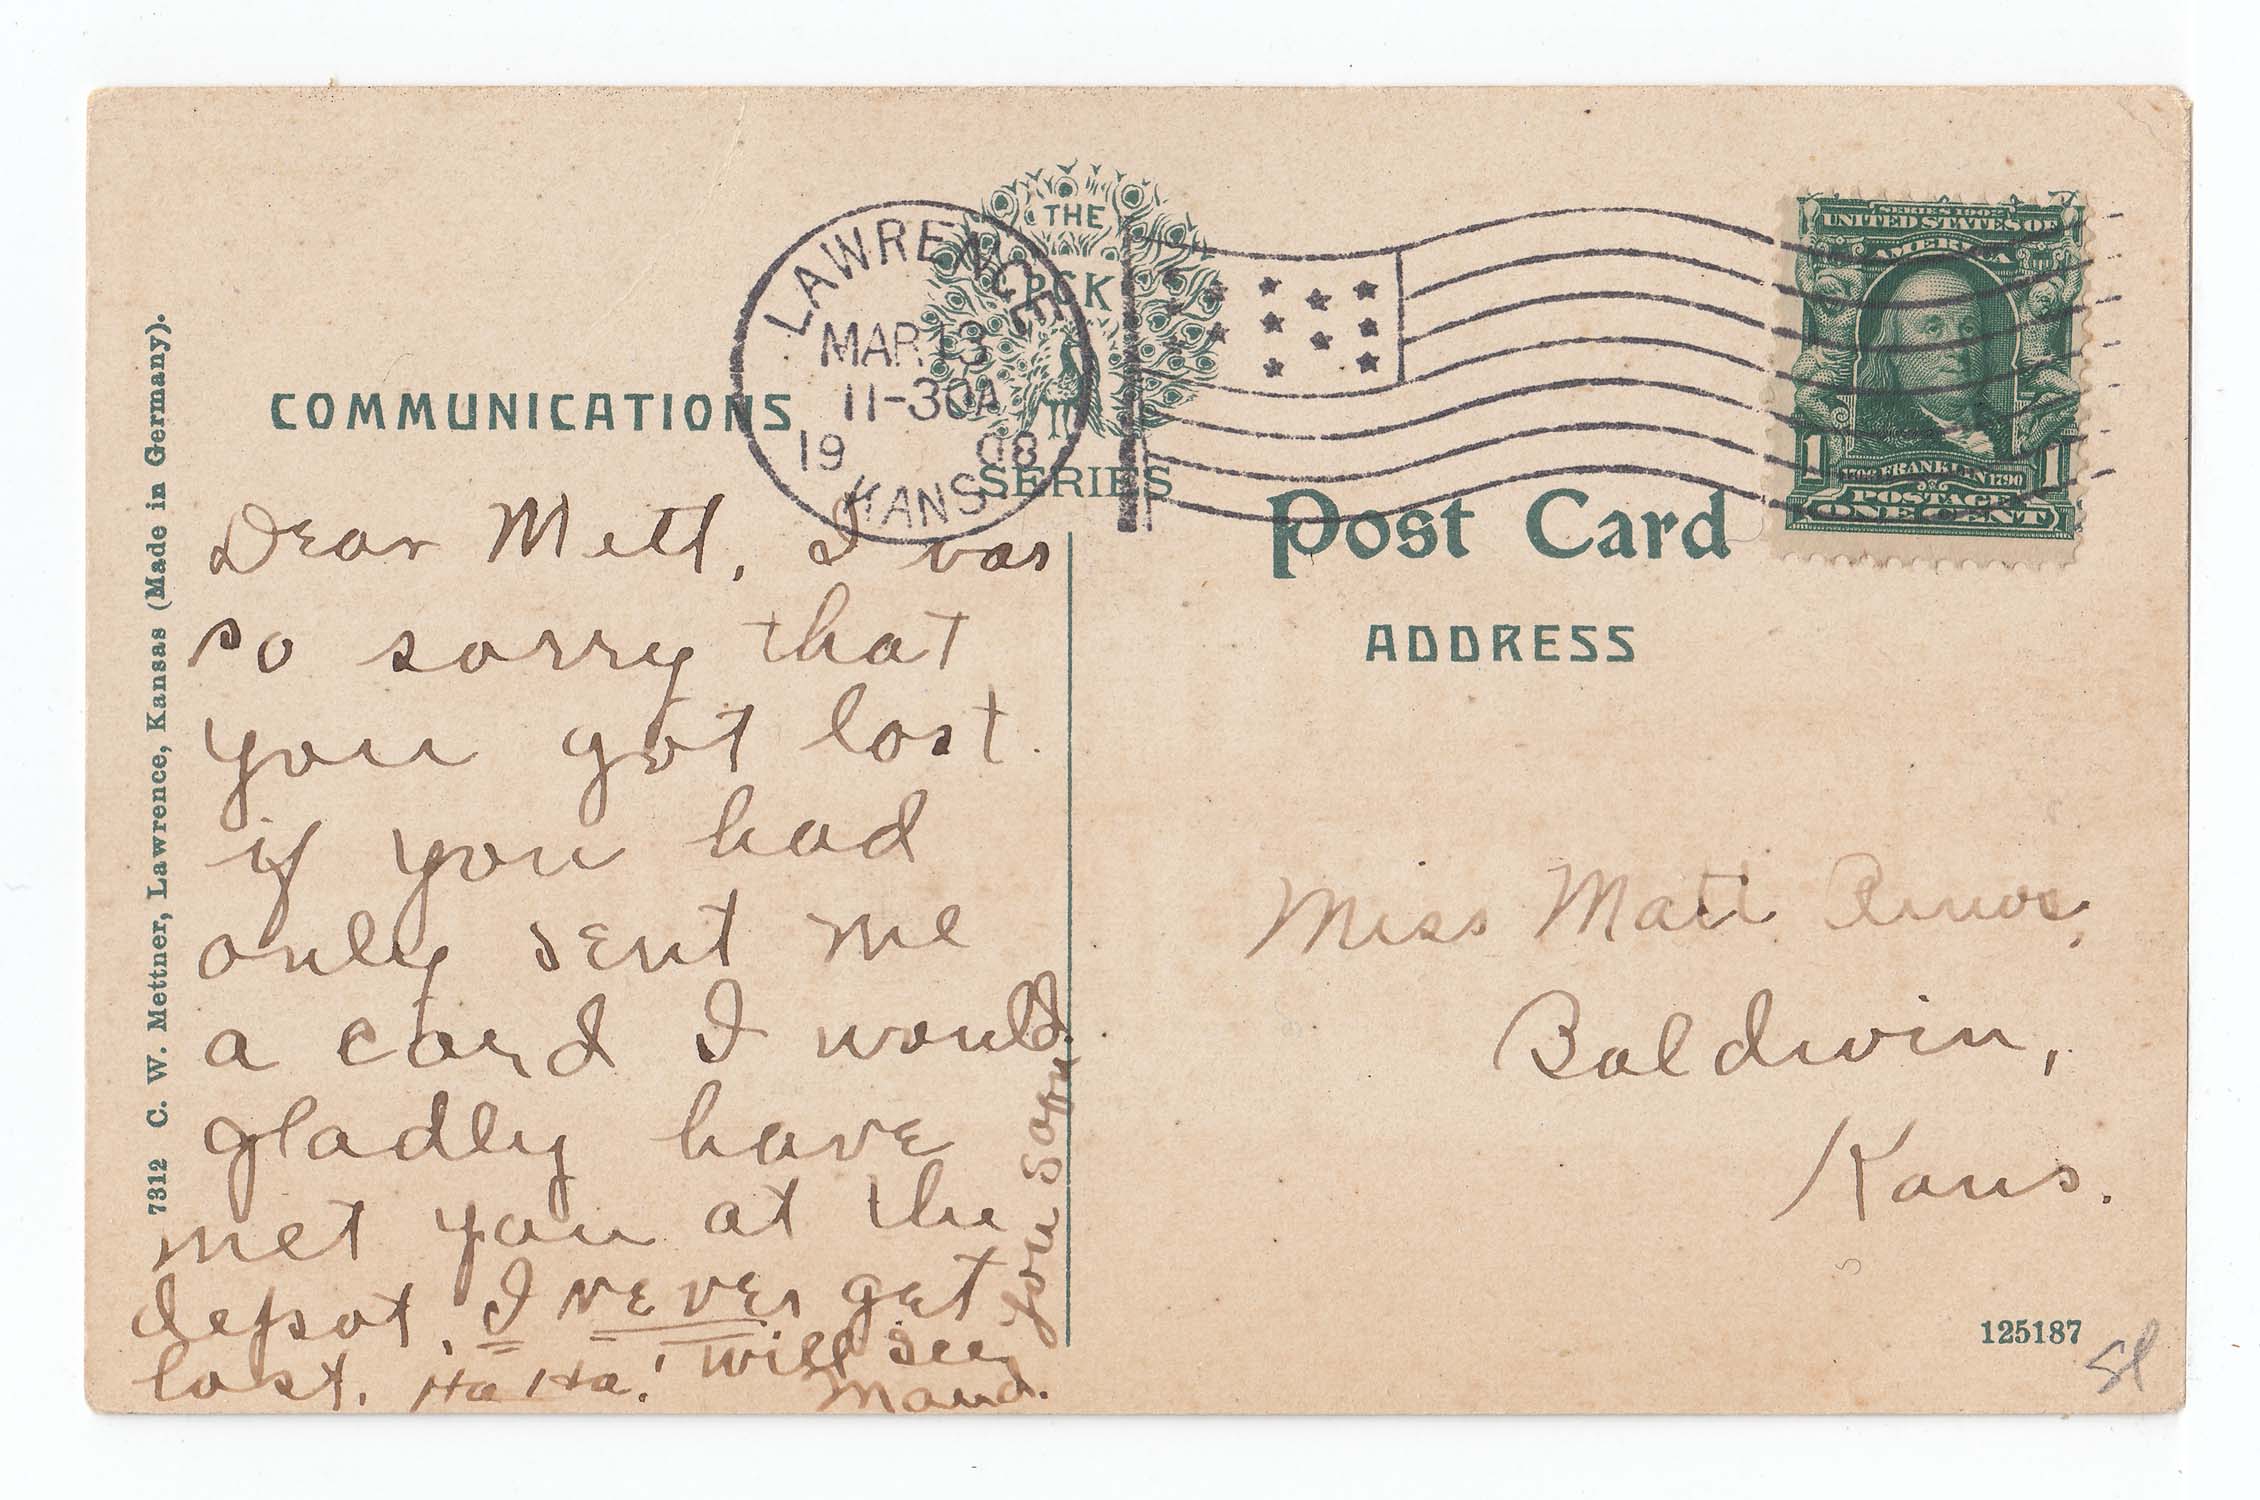 7312 C. W. Mettner, Lawrence, Kansas (Made in Germany).
COMMUNICATIONS
THE
PCK
SERIES
LAWRENCE
MAR 13
11-30A
1908
KANS
SERIES 1902
UNITED STATES OF
AMERICA
1706 FRANKLIN 1790
POSTAGE
1 ONE CENT 1
Post Card
ADDRESS
Dear Matt, I was
so sorry that
you got lost.
if you had
only sent me
a card I would
gladly have
met you at the
depot. I never get
lost. Ha Ha! will see
you soon
Maud.
Miss Matt
Baldwin,
Kans.
125187